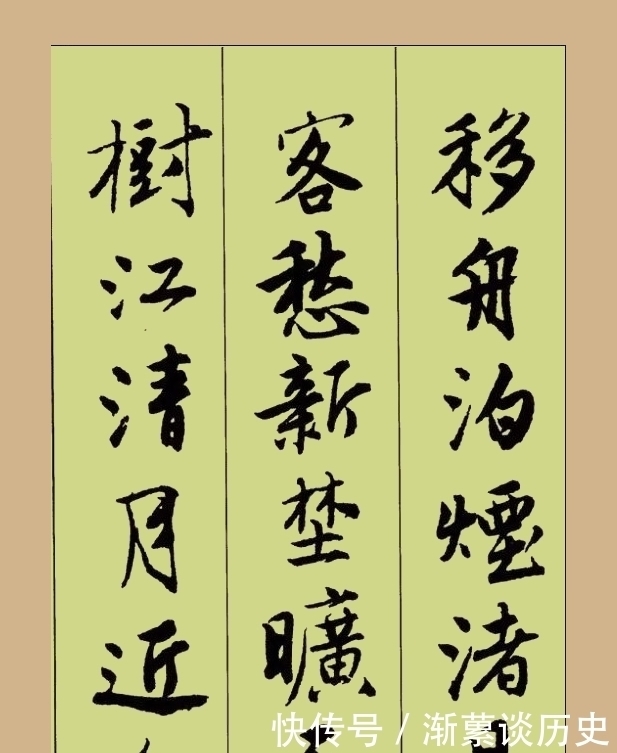 移舟泊煙渚
客愁新埜曠
樹江清月近
快传号 / 渐谈历史